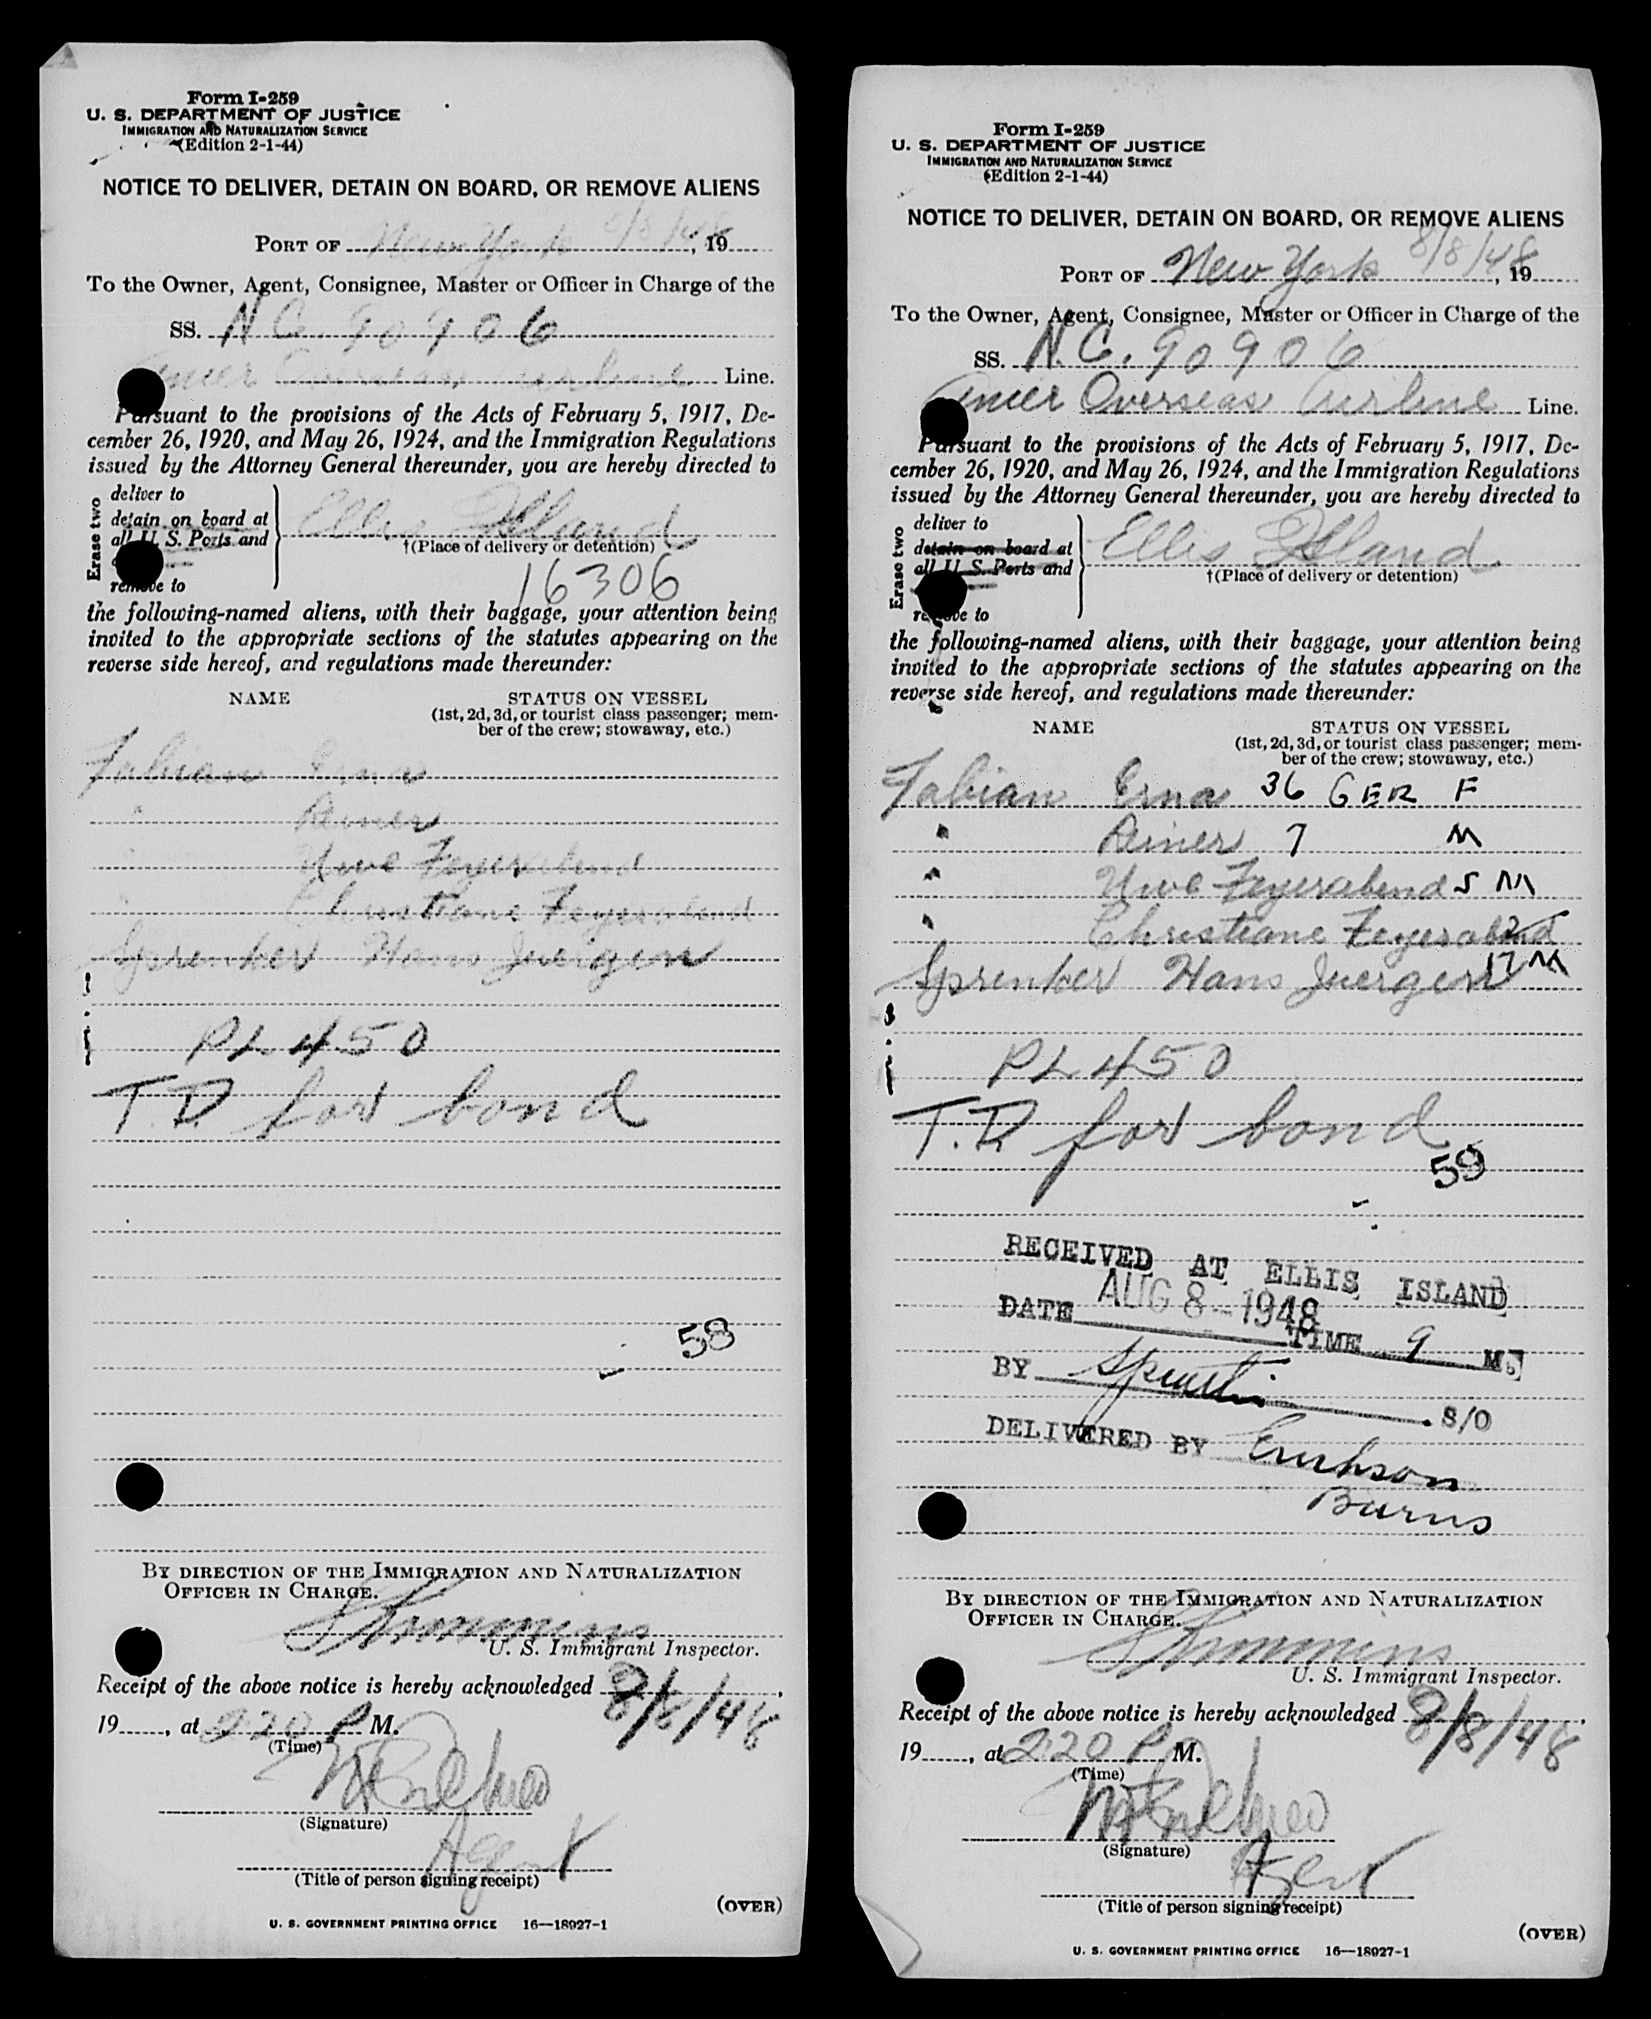 Form I-259
U. S. DEPARTMENT OF JUSTICE
IMMIGRATION AND NATURALIZATION SERVICE
(Edition 2-1-44)
NOTICE TO DELIVER, DETAIN ON BOARD, OR REMOVE ALIENS
PORT OF New York 8/8/48, 19
To the Owner, Agent, Consignee, Master or Officer in Charge of the
SS. N.C. 90906
Amer Overseas Airline Line.
Pursuant to the provisions of the Acts of February 5, 1917, De-
cember 26, 1920, and May 26, 1924, and the Immigration Regulations
issued by the Attorney General thereunder, you are hereby directed to
Erase two
deliver to
detain on board at
all U. S. Ports and
remove to
Ellis Island
†(Place of delivery or detention)
16306
the following-named aliens, with their baggage, your attention being
invited to the appropriate sections of the statutes appearing on the
reverse side hereof, and regulations made thereunder:
NAME STATUS ON VESSEL
(1st, 2d, 3d, or tourist class passenger; mem-
ber of the crew; stowaway, etc.)
Fabian Erna
" Reiner
Uwe Feyerabend
" Christiane Feyerabend
Sprenker Hans Juergen
PL 450
T.D. for bond
58
BY DIRECTION OF THE IMMIGRATION AND NATURALIZATION
OFFICER IN CHARGE.
U. S. Immigrant Inspector.
Receipt of the above notice is hereby acknowledged 8/8/48,
19, at 220 P M.
(Time)
(Signature)
Agent
(Title of person signing receipt)
(OVER)
U. S. GOVERNMENT PRINTING OFFICE 16—18927-1
Form I-259
U. S. DEPARTMENT OF JUSTICE
IMMIGRATION AND NATURALIZATION SERVICE
(Edition 2-1-44)
NOTICE TO DELIVER, DETAIN ON BOARD, OR REMOVE ALIENS
PORT OF New York 8/8/48, 19
To the Owner, Agent, Consignee, Master or Officer in Charge of the
SS. N.C. 90906
Amer Overseas Airline Line.
Pursuant to the provisions of the Acts of February 5, 1917, De-
cember 26, 1920, and May 26, 1924, and the Immigration Regulations
issued by the Attorney General thereunder, you are hereby directed to
Erase two
deliver to
detain on board at
all U. S. Ports and
remove to
Ellis Island
†(Place of delivery or detention)
the following-named aliens, with their baggage, your attention being
invited to the appropriate sections of the statutes appearing on the
reverse side hereof, and regulations made thereunder:
NAME STATUS ON VESSEL
(1st, 2d, 3d, or tourist class passenger; mem-
ber of the crew; stowaway, etc.)
Fabian Erna 36 GER F
" Reiner 7 M
" Uwe Feyerabend 5 M
" Christiane Feyerabend
Sprenker Hans Juergen 17 M
PL 450
T.D. for bond
59
RECEIVED AT ELLIS ISLAND
DATE AUG 8 - 1948 TIME 9 M.
BY S/O
DELIVERED BY Erickson
Burns
BY DIRECTION OF THE IMMIGRATION AND NATURALIZATION
OFFICER IN CHARGE.
U. S. Immigrant Inspector.
Receipt of the above notice is hereby acknowledged 8/8/48,
19, at 220 P M.
(Time)
(Signature)
Agent
(Title of person signing receipt)
(OVER)
U. S. GOVERNMENT PRINTING OFFICE 16—18927-1